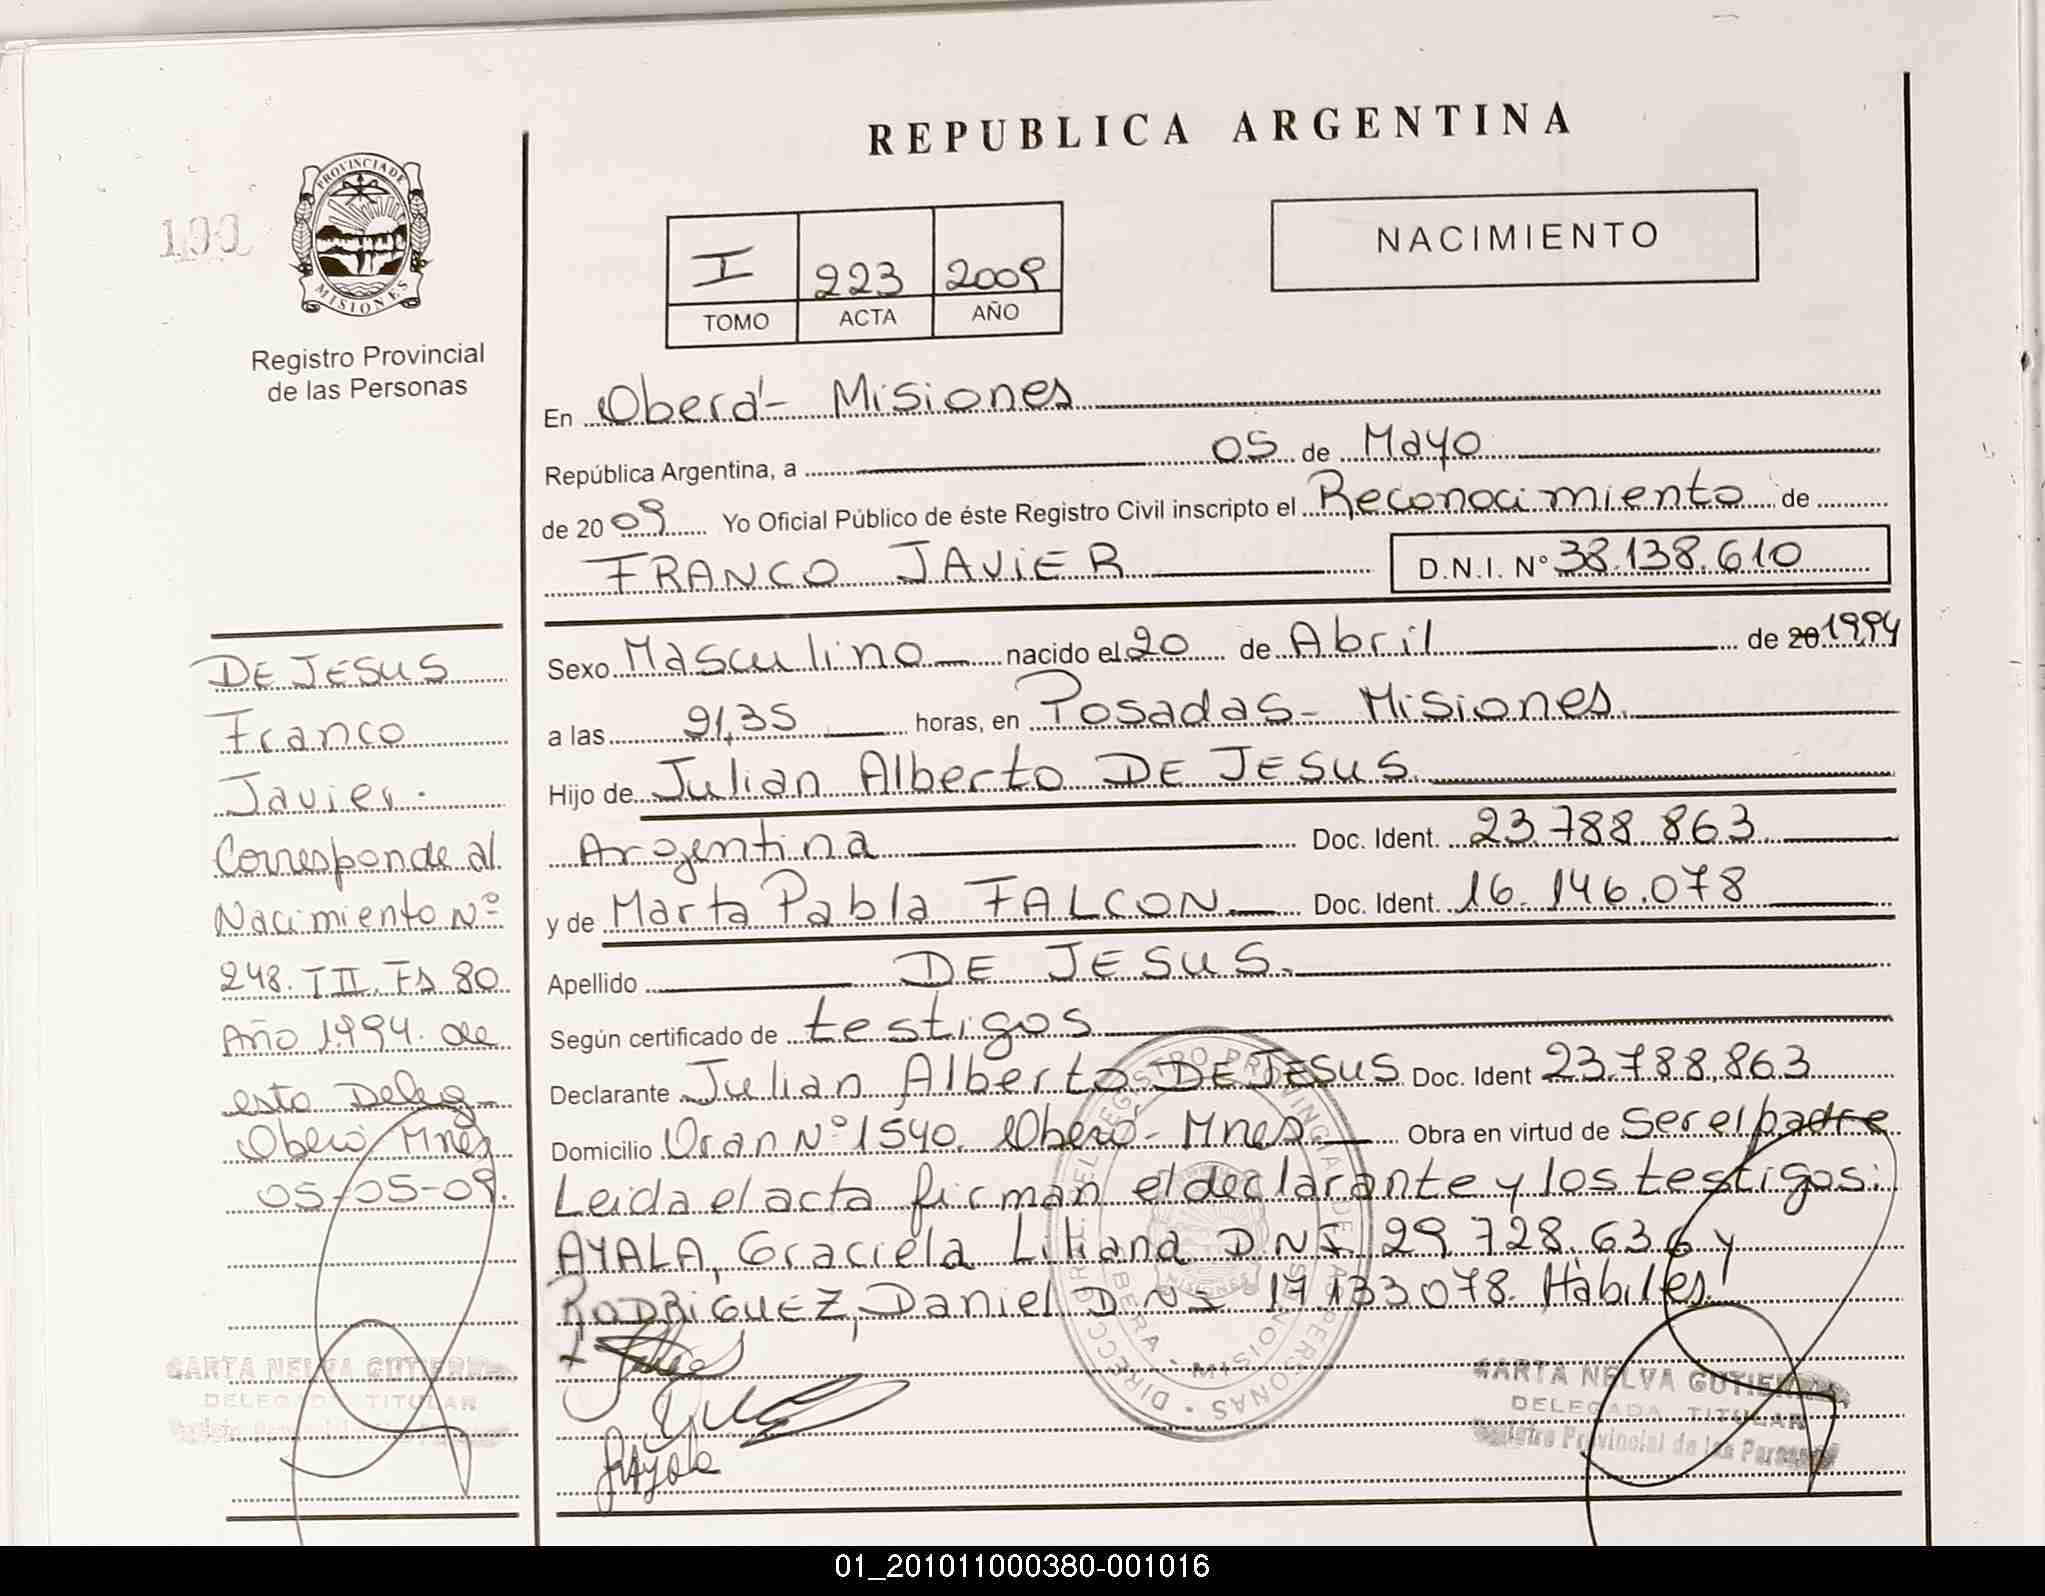 REPUBLICA ARGENTINA
100
PROVINCIA DE
MISIONES
Registro Provincial
de las Personas
I 223 2009
TOMO ACTA AÑO
NACIMIENTO
En Oberá - Misiones
República Argentina, a 05 de Mayo
de 2009 Yo Oficial Público de éste Registro Civil inscripto el Reconocimiento de
FRANCO JAVIER D.N.I. Nº 38.138.610
Sexo Masculino nacido el 20 de Abril de 20 1994
a las 21,35 horas, en Posadas - Misiones.
Hijo de Julian Alberto DE JESUS
Argentina Doc. Ident. 23.788.863
y de Marta Pabla FALCON Doc. Ident. 16.146.078
Apellido DE JESUS.
Según certificado de testigos
Declarante Julian Alberto DE JESUS Doc. Ident 23.788.863
Domicilio Oran Nº 1540. Oberá - Mnes Obra en virtud de ser el padre
Leida el acta firman el declarante y los testigos:
AYALA, Graciela Liliana D.N.I. 29.728.636 y
RODRIGUEZ, Daniel D.N.I. 17.133.078. Hábiles.
DE JESUS
Franco
Javier.
Corresponde al
Nacimiento Nº
248. T II. Fs 80
Año 1994. de
esta Deleg
Oberá Mnes
05-05-09.
NELVA GUTIERREZ
DELEGADA TITULAR
DIRECCION DEL REGISTRO PROVINCIAL DE LAS PERSONAS
OBERA · MISIONES
NELVA GUTIERREZ
DELEGADA TITULAR
Registro Provincial de las Personas
01_201011000380-001016